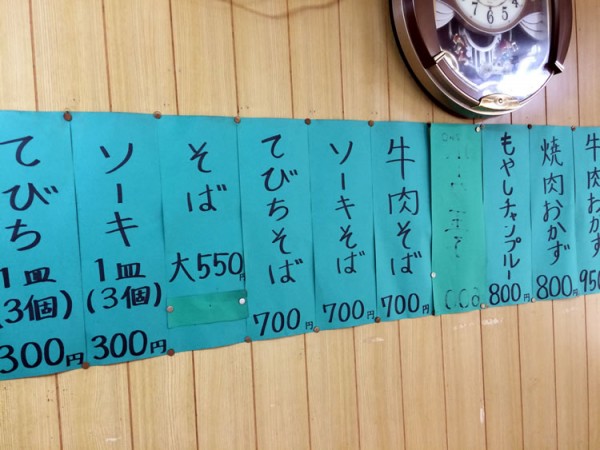 てびち
1皿
(3個)
300円
ソーキ
1皿
(3個)
300円
そば
大550円
てびちそば
700円
ソーキそば
700円
牛肉そば
700円
もやしチャンプルー
800円
焼肉おかず
800円
牛肉おかず
950